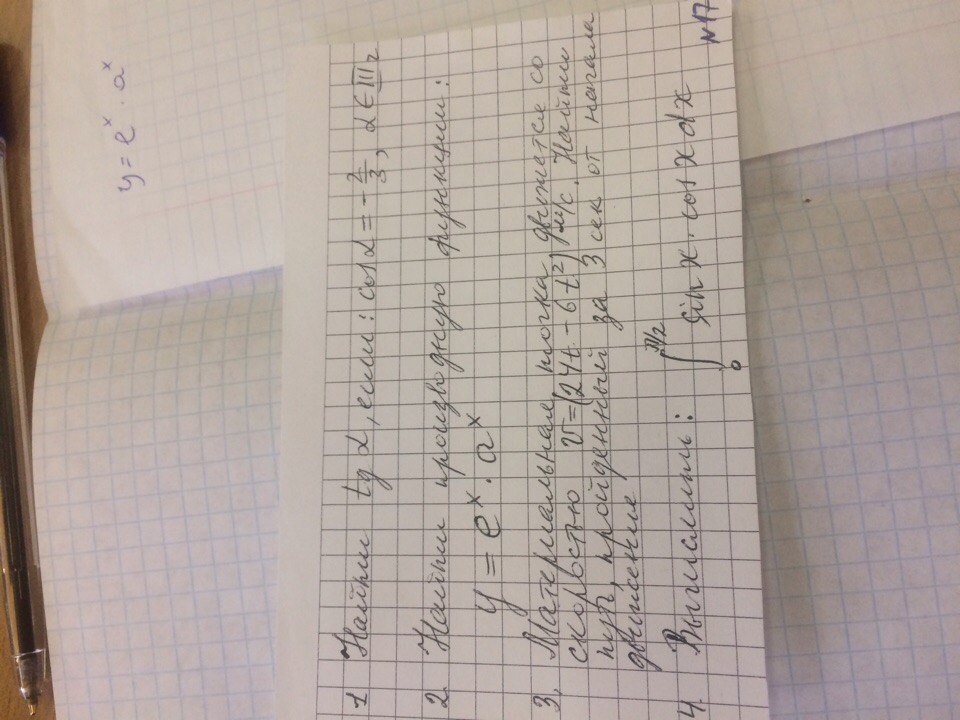 y = e^x · a^x
1 Найти tg α, если: cos α = -2/3, α ∈ III г
2. Найти производную функции:
y = e^x · a^x
3. Материальная точка движется со
скоростью v = (24t - 6t²) м/с. Найти
путь пройденный за 3 сек от начала
движение
4. Вычислить: ∫₀^π/2 sin x · cos x dx
№17